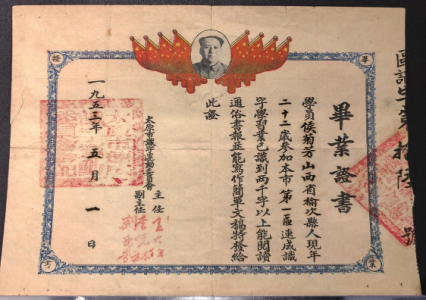 畢業證書
學員侯菊芳山西省榆次縣人現年
二十二歲參加本市第一區速成識
字學習業已識到兩千字以上能閱讀
通俗書報並能寫作簡單文稿特發給
此證
太原市識字運動委員會
主任
副主任
一九五三年五月一日